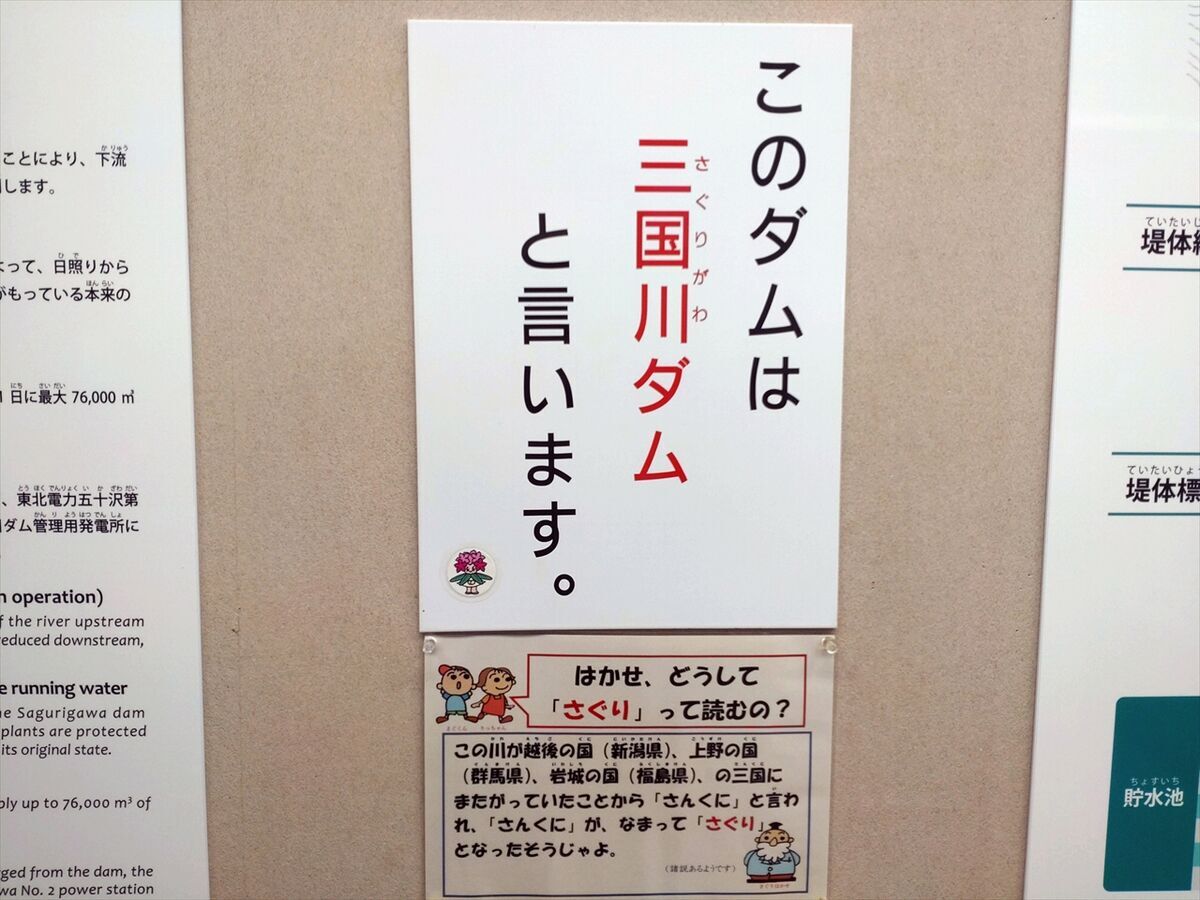 ことにより、下流
します。
よって、日照りから
がもっている本来の
日に最大 76,000 ㎥
、東北電力五十沢第
ダム管理用発電所に
n operation)
f the river upstream
reduced downstream,
e running water
he Sagurigawa dam
plants are protected
its original state.
ply up to 76,000 m³ of
rged from the dam, the
wa No. 2 power station
このダムは
三国川ダム
さぐりがわ
と言います。
はかせ、どうして
「さぐり」って読むの?
この川が越後の国(新潟県)、上野の国
(群馬県)、岩城の国(福島県)、の三国に
またがっていたことから「さんくに」と言わ
れ、「さんくに」が、なまって「さぐり」
となったそうじゃよ。
(諸説あるようです)
さぐりはかせ
ていたい
堤体
ていたいひょう
堤体標
ちょすいち
貯水池